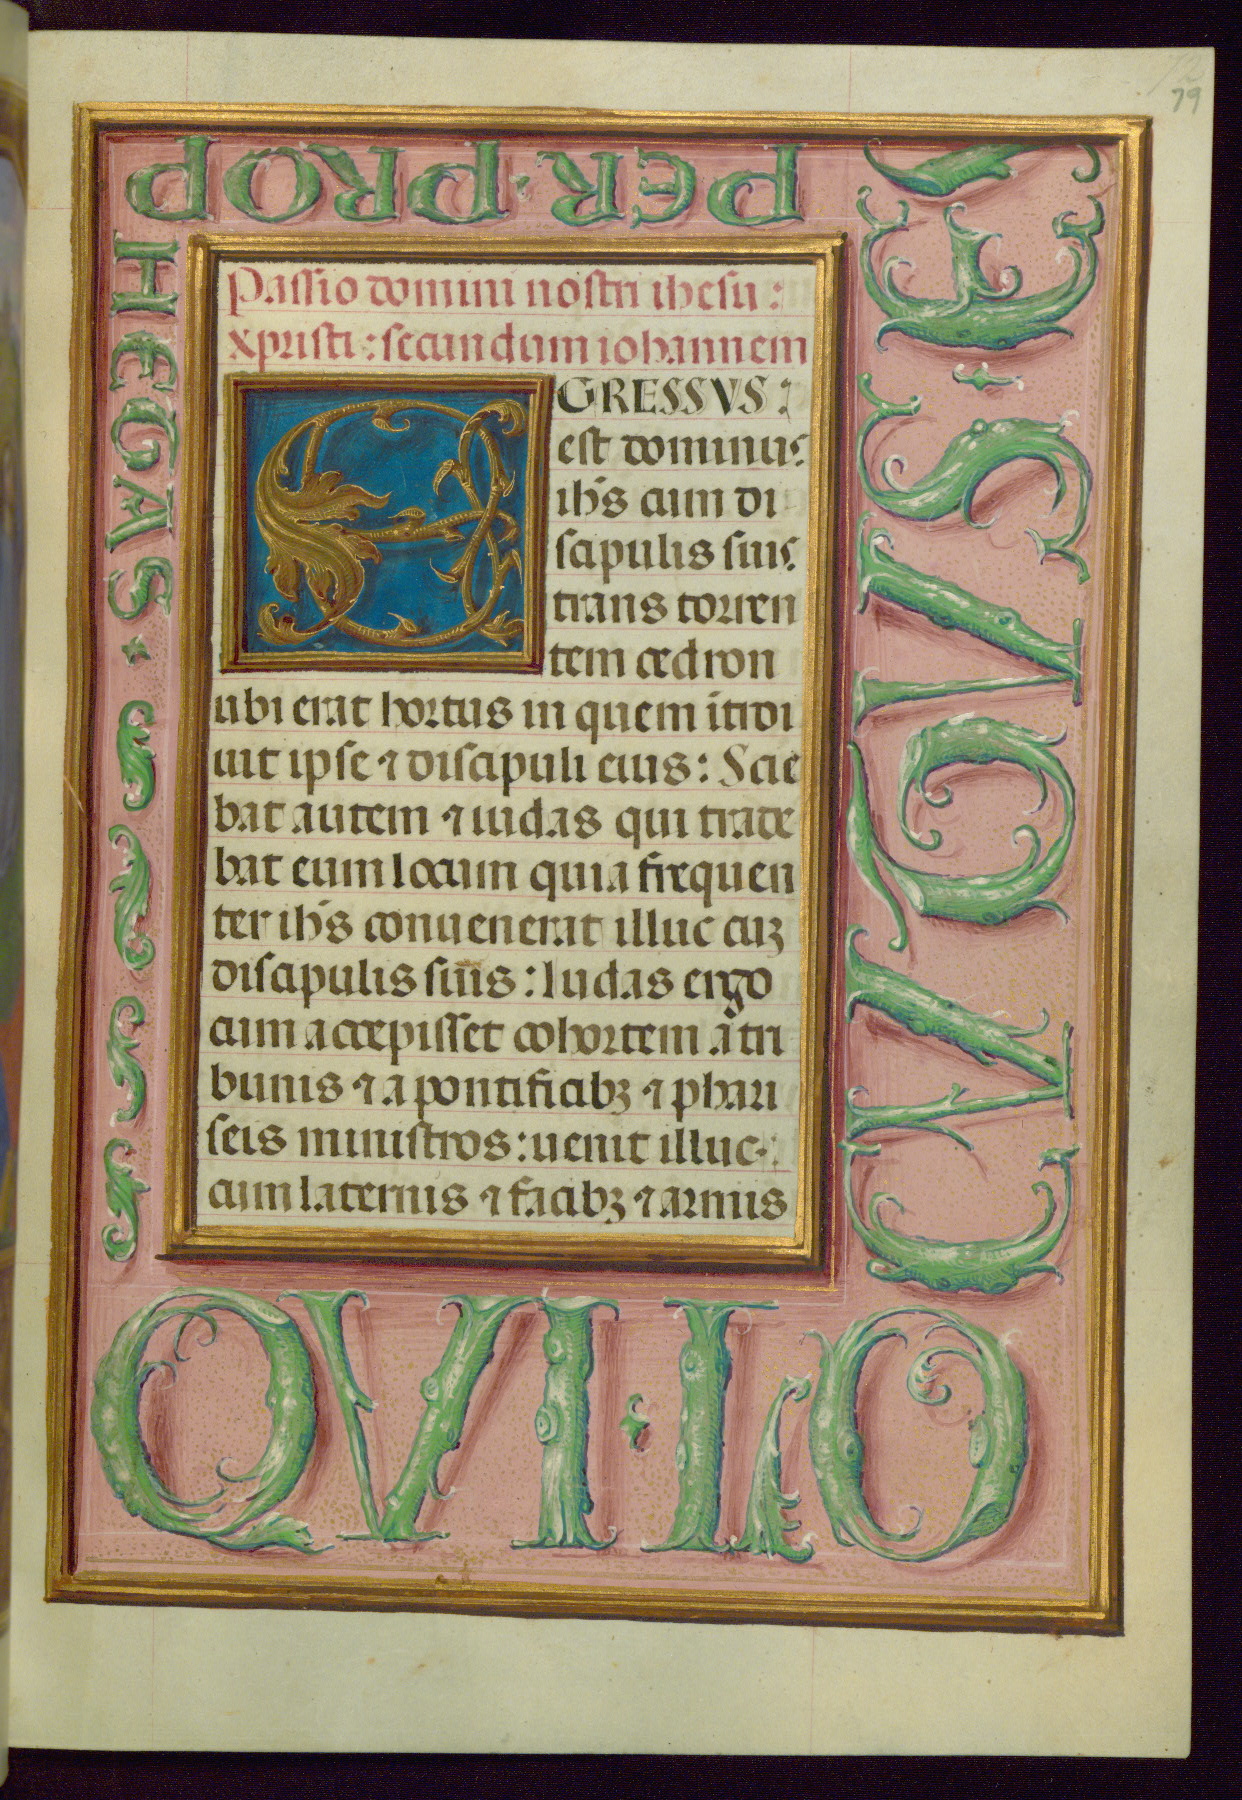 79
Passio domini nostri ihesu :
xpristi : secundum iohannem
EGRESSVS :
est dominus
ihs̄ cum di
scapulis suis
trans torren
tem cedron
ubi erat hortus in quem ītroi
uit ipse ⁊ discipuli eius : Scie
bat autem ⁊ iudas qui trade
bat eum locum quia frequen
ter ihs̄ conuenerat illuc cuꝫ
discipulis suis : Iudas ergo
cum accepisset cohortem a tri
bunis ⁊ a pontificibꝫ ⁊ phari
seis ministros : uenit illuc
cum laternis ⁊ facibꝫ ⁊ armis
QVI · LO
CVTVS · E
PER · PROP
HETAS ·